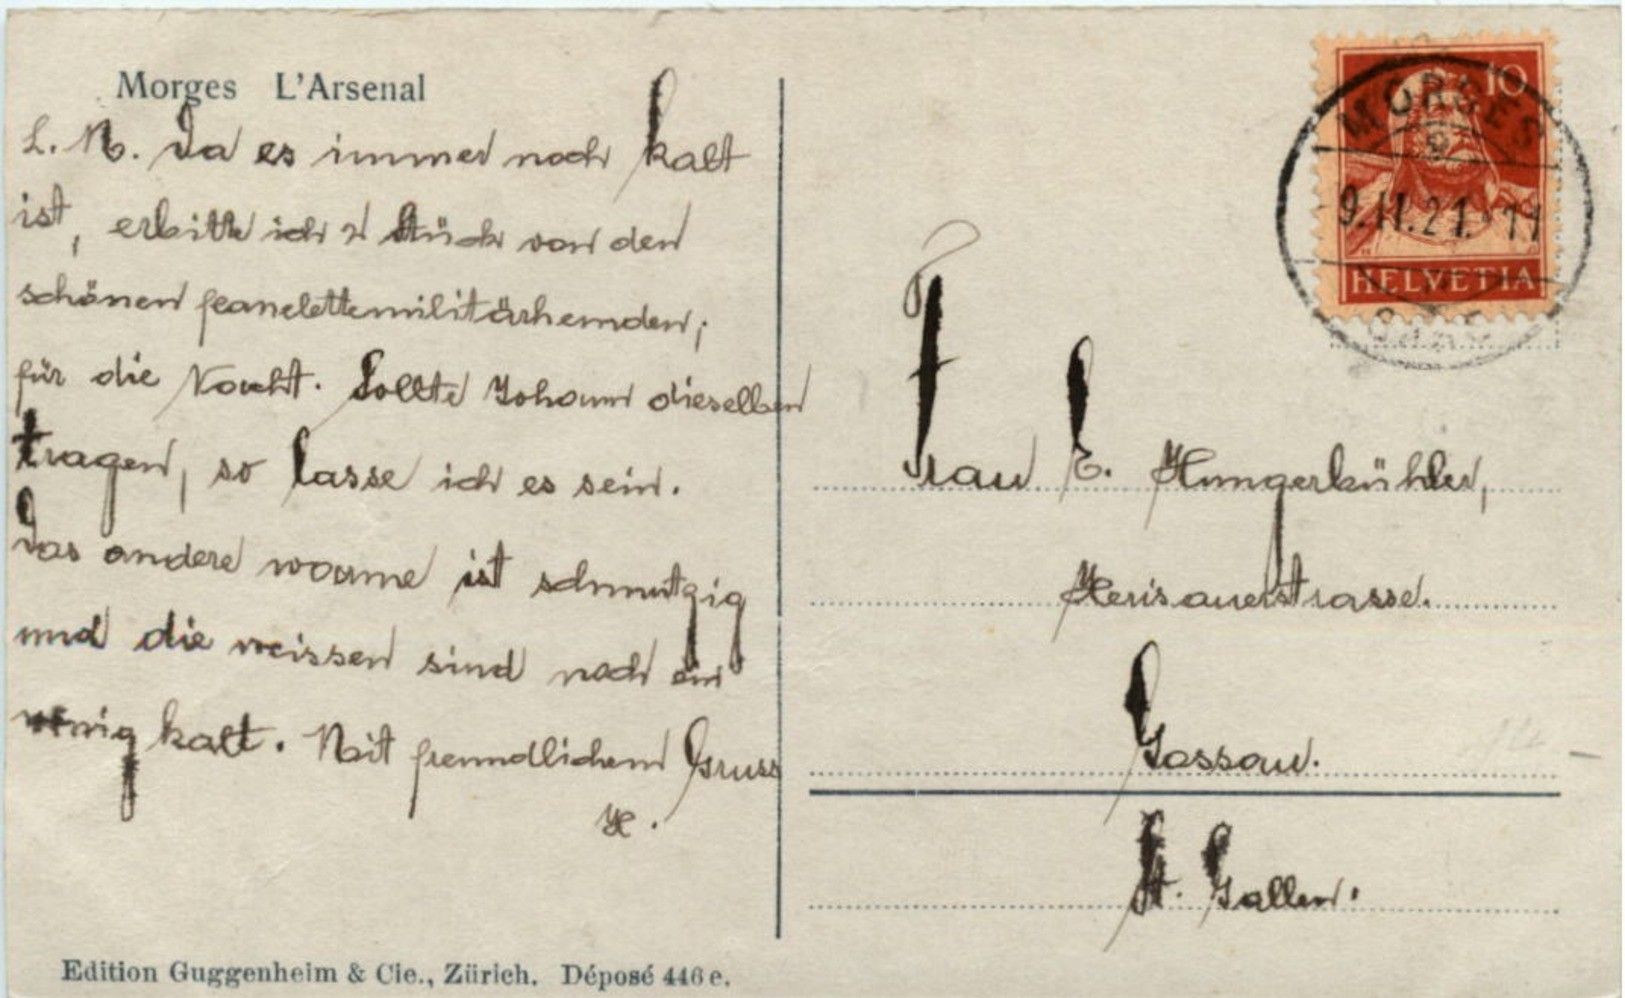 Morges L'Arsenal
L. M. Da es immer noch kalt
ist, erbitte ich 2 Stück von den
schönen feanelettemilitärhemden;
für die Nacht. Sollte Johann dieselben
tragen, so lasse ich es sein.
Das andere warme ist schmutzig
und die weissen sind noch ein
wenig kalt. Mit freundlichem Gruss
H.
Edition Guggenheim & Cie., Zürich. Déposé 446 e.
10
MORGES
9.II.21. 11
HELVETIA
Frau E. Hungerbühler,
Herisauerstrasse.
Gossau.
St. Gallen.